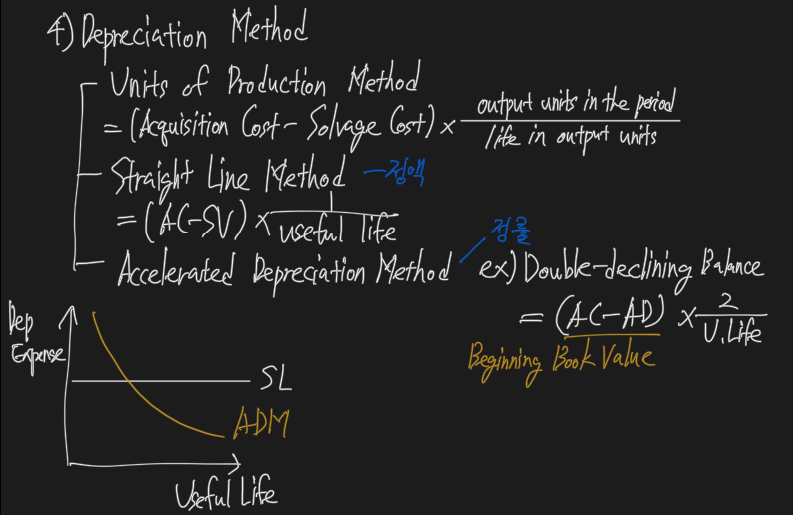 4) Depreciation Method
Units of Production Method
= (Acquisition Cost - Solvage Cost) × output units in the period / life in output units
Straight Line Method - 정액
= (AC-SV) × 1 / useful life
Accelerated Depreciation Method 정률 ex) Double-declining Balance
= (AC-AD) × 2 / U.Life
Beginning Book Value
Dep Expense
SL
ADM
Useful Life